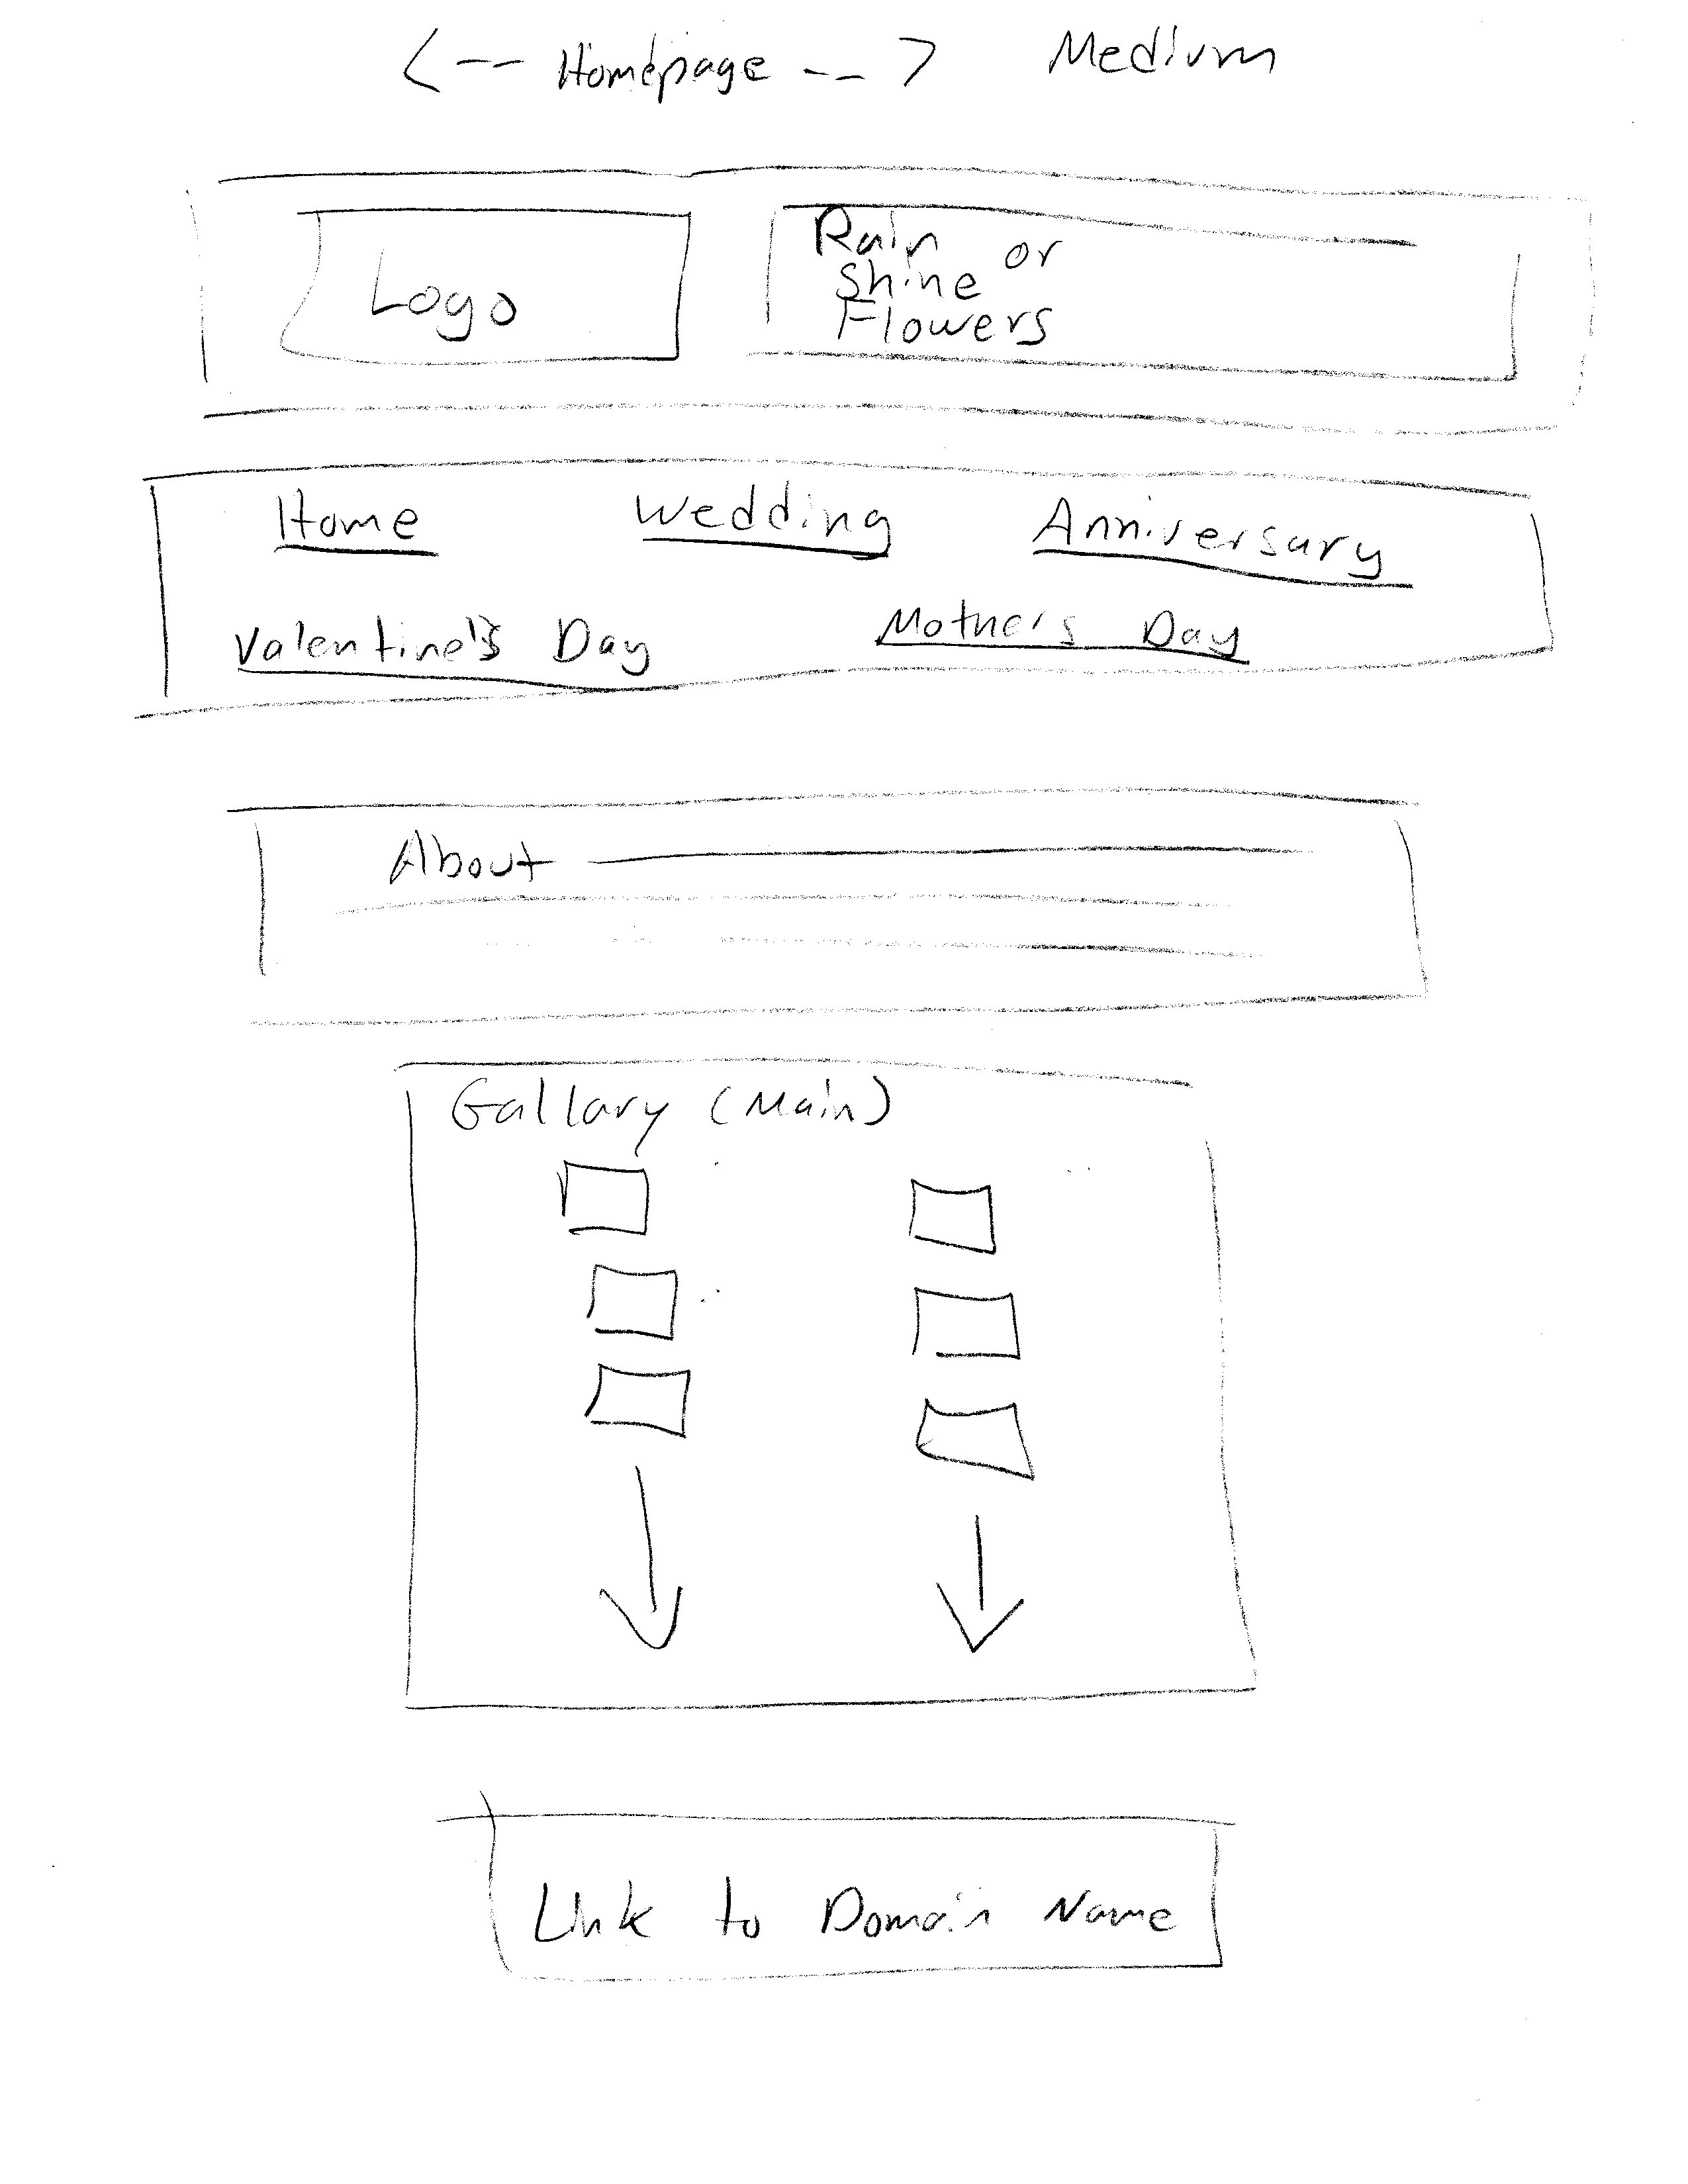 <-- Homepage --> Medium
Logo
Rain or
Shine
Flowers
Home Wedding Anniversary
Valentine's Day Mother's Day
About
Gallary (Main)
Link to Domain Name